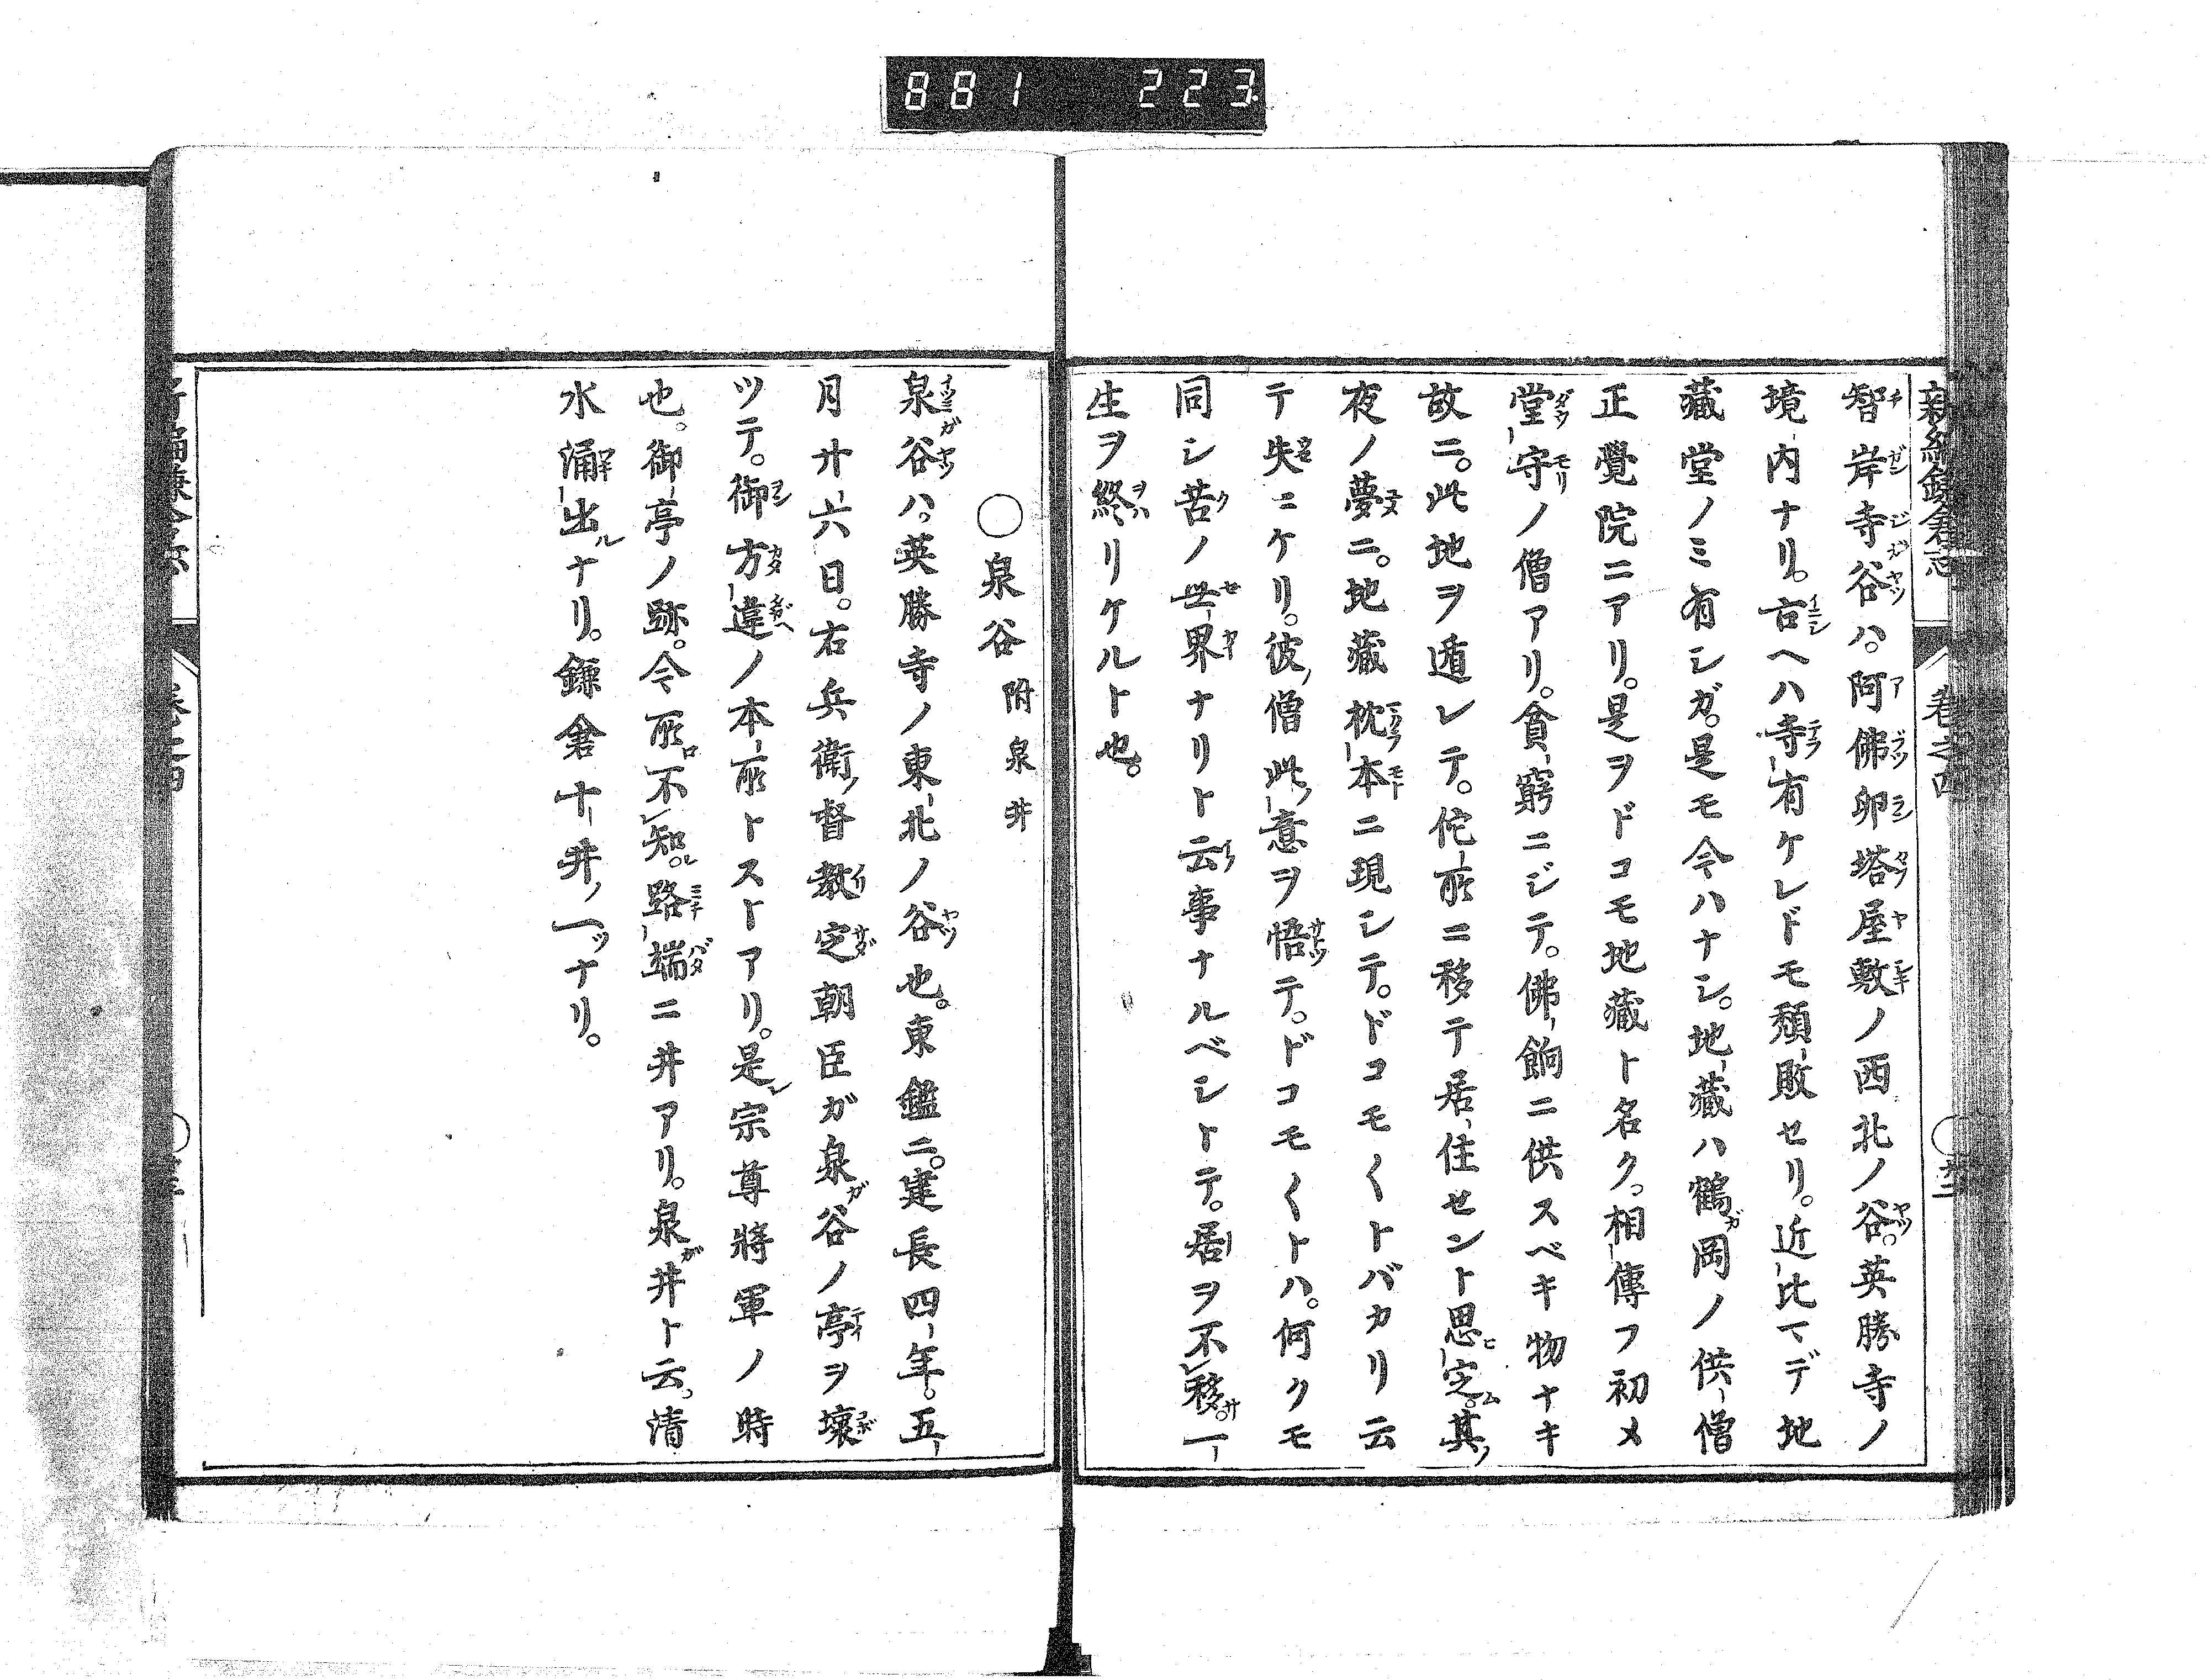 881 223
新編鎌倉志 卷之四
智岸寺谷ハ。阿佛卵塔屋敷ノ西北ノ谷。英勝寺ノ
境内ナリ。古ヘハ寺有ケレドモ頽敗セリ。近比マデ地
藏堂ノミ有シガ。是モ今ハナシ。地藏ハ鶴岡ノ供僧
正覺院ニアリ。是ヲドコモ地藏ト名ク。相傳フ初メ
堂守ノ僧アリ。貧窮ニシテ。佛餉ニ供スベキ物ナキ
故ニ。此地ヲ遁レテ。佗所ニ移テ居住セント思定。其
夜ノ夢ニ。地藏枕本ニ現シテ。ドコモ〱トバカリ云
テ失ニケリ。彼僧此意ヲ悟テ。ドコモ〱トハ。何クモ
同シ苦ノ世界ナリト云事ナルベシトテ。居ヲ不移一
生ヲ終リケルト也。
○泉谷 附泉井
泉谷ハ。英勝寺ノ東北ノ谷也。東鑑ニ。建長四年。五
月廿六日。右兵衛督教定朝臣ガ泉谷ノ亭ヲ壞
ツテ。御方違ノ本所トストアリ。是宗尊將軍ノ時
也。御亭ノ跡。今所不知。路端ニ井アリ。泉井ト云。清
水涌出ナリ。鎌倉十井ノ一ツナリ。